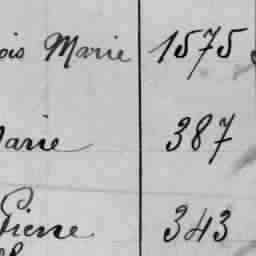 ois Marie 1575
Marie 387
Pierre 343